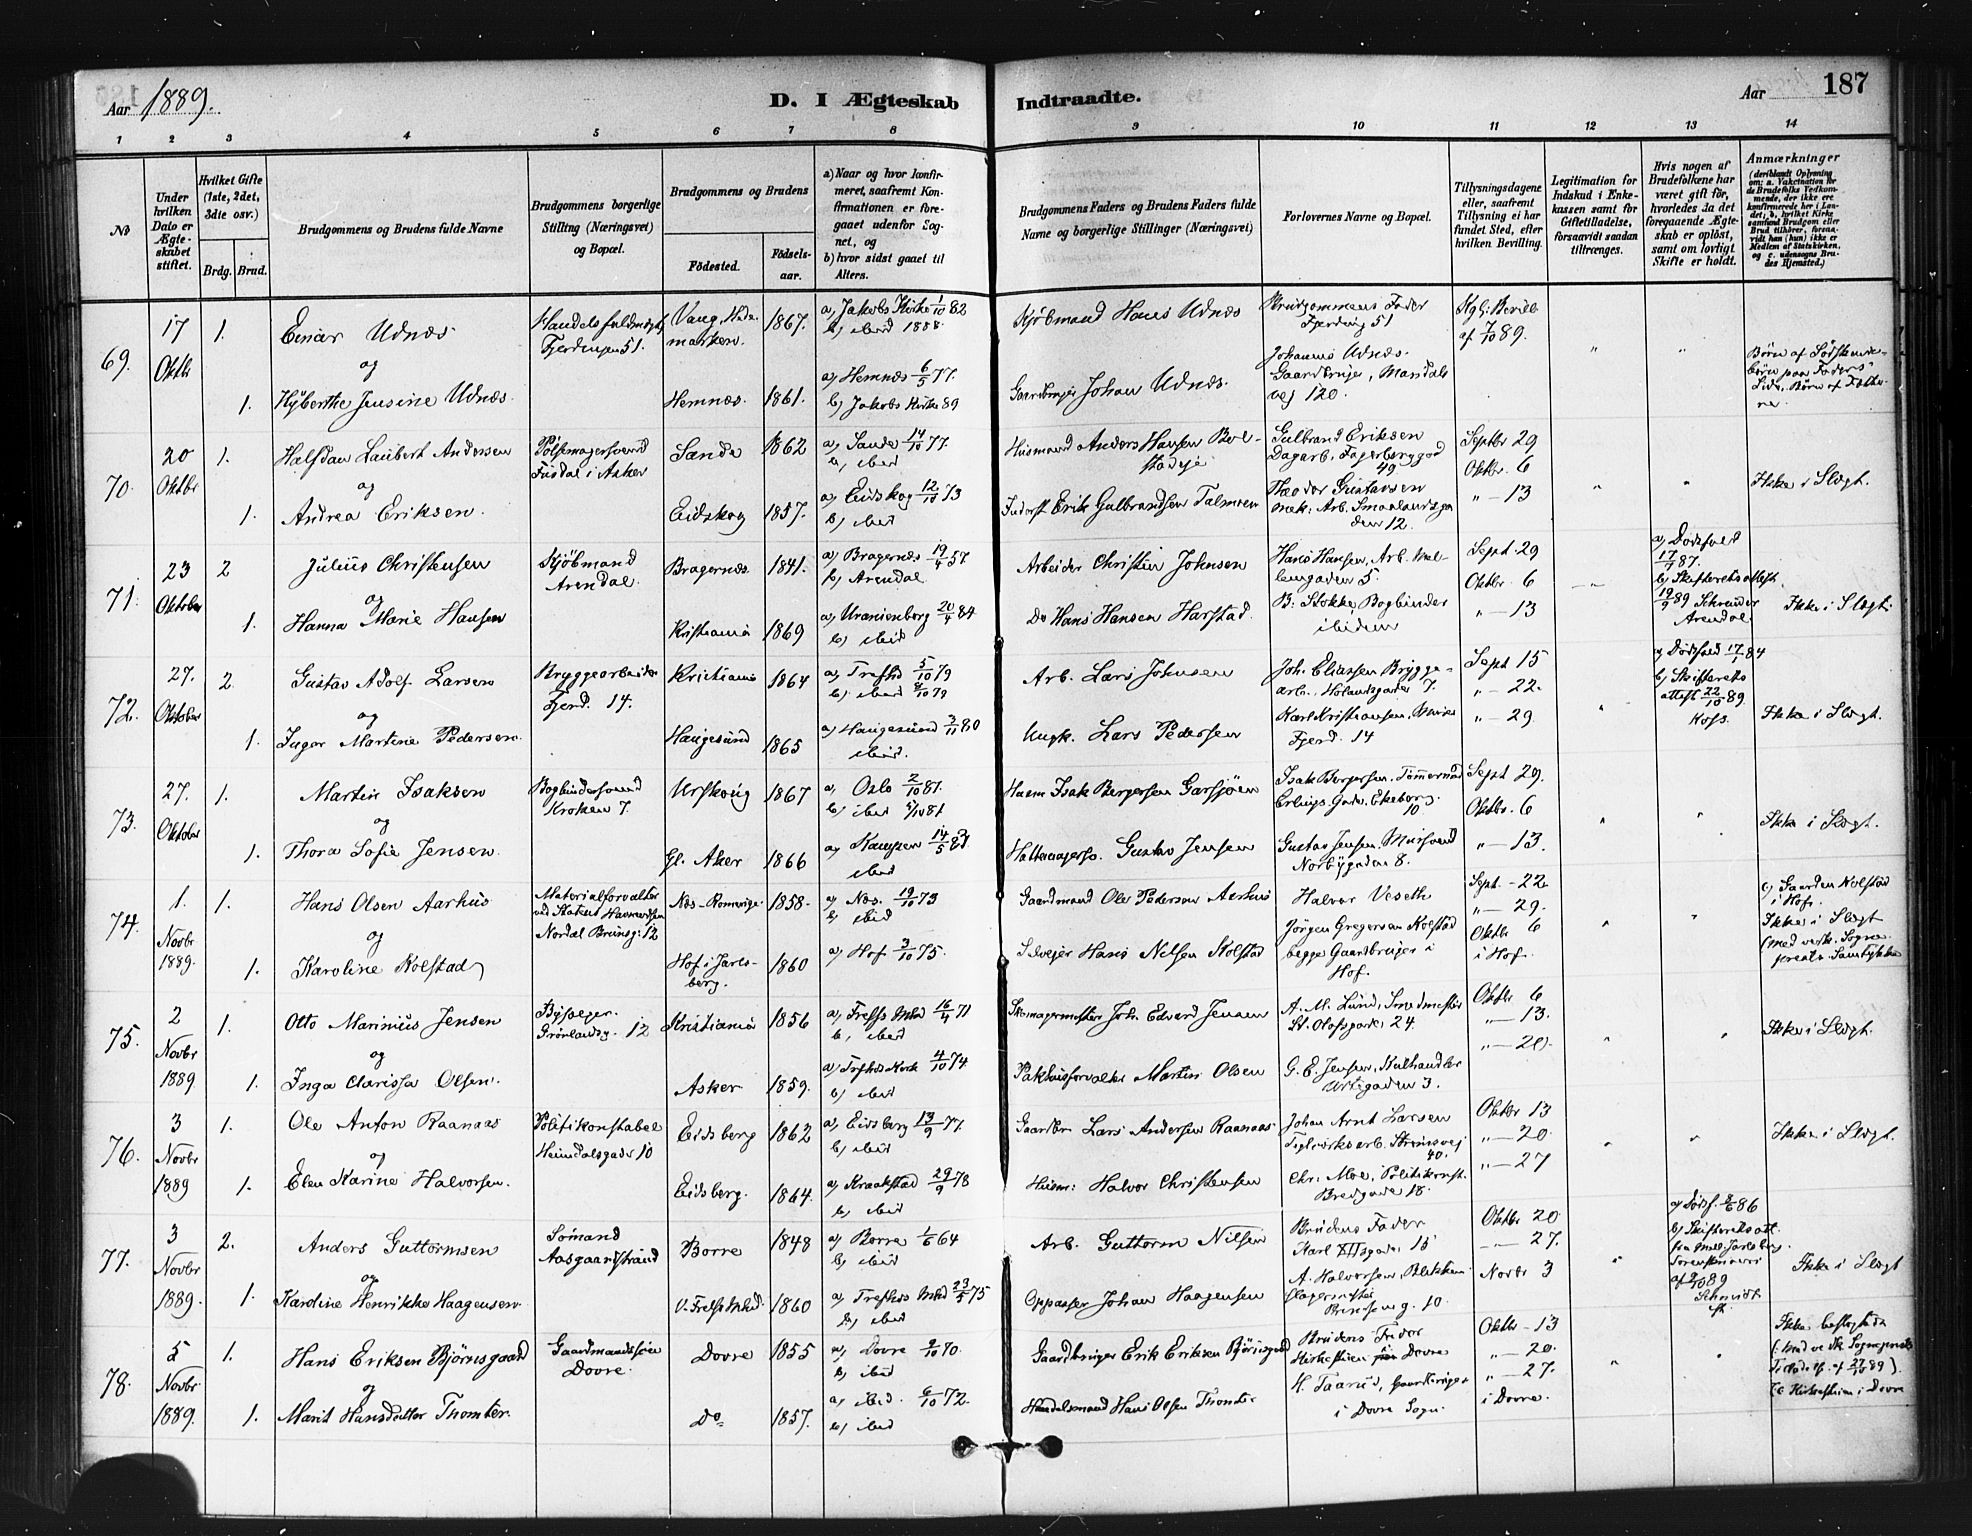 Aar 1889.
D. I Ægteskab Indtraadte.
Aar 187
1 2 3 4 5 6 7 8 9 10 11 12 13 14
No
Under hvilken Dato er Ægteskabet stiftet.
Hvilket Gifte (1ste, 2det, 3die osv.)
Brdg. Brud.
Brudgommens og Brudens fulde Navne
Brudgommens borgerlige Stilling (Næringsvei) og Bopæl.
Brudgommens og Brudens
Fødested. Fødselsaar.
a) Naar og hvor konfirmeret, saafremt Konfirmationen er foregaaet udenfor Sognet, og
b) hvor sidst gaaet til Alters.
Brudgommens Faders og Brudens Faders fulde Navne og borgerlige Stillinger (Næringsvei)
Forlovernes Navne og Bopæl.
Tillysningsdagene eller, saafremt Tillysning ei har fundet Sted, efter hvilken Bevilling.
Legitimation for Indskud i Enkekassen samt for Giftetilladelse, forsaavidt saadan tiltrænges.
Hvis nogen af Brudefolkene har været gift før, hvorledes da det foregaaende Ægteskab er opløst, samt om lovligt Skifte er holdt.
Anmærkninger (deriblandt Oplysning om: a. Vakcination for de Brudefolks Vedkommende, der ikke ere konfirmerede her i Landet; b. hvilket Kirkesamfund Brudgom eller Brud tilhører, forsaavidt han (hun) ikke er Medlem af Statskirken, og c. udensogns Brudes Hjemsted.)
69. 17 Oktbr 1. Einar Udnæs Handelsfuldmægt. Fjerdingen 51. Vang, Hedemarken. 1867. a) Jakobs Kirke 1/10 82 b) ibid 1888. Kjøbmand Hans Udnæs Brudgommens Fader Fjerding 51 Kgl: Bevill: af 7/10 89.
og
1. Hyberthe Jensine Udnæs. Hemnæs. 1861. a) Hemnæs 6/5 77. b) Jakobs Kirke 89 Gaardbruger Johan Udnæs. Johannes Udnæs. Gaardbruger, Mandals vej 120. Børn af Sødskendebørn paa Faders Side.
70. 20 Oktbr 1. Halfdan Laubert Andersen Pølsemagersvend Fusdal i Asker Sande 1862 a) Sande 14/10 77. b) ibid Husmand Anders Hansen Gulbrand Eriksen Dagarb. Fagerberggad 49 Septbr 29 Oktbr. 6
og
1. Andrea Eriksen. Eidskog 1857. a) Eidskog 12/10 73 b) ibid Inderst Erik Gulbrandsen Talmoen Theodor Gustavsen Mek: Arb. Smaalensgaden 12. " — 13 Ikke i Slægt.
71. 23 Oktober 2 Julius Christensen Kjøbmand Arendal. Bragernæs 1841. a) Bragernæs 19/4 57 b) Arendal Arbeider Christian Johnsen Hans Hansen, Arb. Møllergaden 5. Sept. 29 Oktbr. 6 a) Dødsfald 17/7 87. b) Skifteretsattest. 19/9 89 Schreuder Arendal.
og
1. Hanna Marie Hansen Kristiania 1869 a) Uranienborg 20/4 84 b) ibid Do Hans Hansen Harstad. B: Stokke, Bogbinder ibidem " — 13 Ikke i Slægt.
72. 27. Oktober 2 Gustav Adolf Larsen Bryggearbeider Fjerd. 14. Kristiania 1864 a) Trefld 5/10 79 b) ibid 8/10 79 Arb. Lars Johnsen Joh. Eliassen Bryggearb., Holandsgaden 7. Sept 15 " — 22. a) Dødsfald 17/1 84 b) Skifterets attest 22/10 89.
og
1. Inger Martine Pedersen. Haugesund 1865 a) Haugesund 3/11 80 ibid. Ungk. Lars Pedersen Karl Kristiansen, Murer Fjerd. 14 " — 29 Ikke i Slægt.
73. 27. Oktober 1. Martin Isaksen Bogbindersvend Kroken 7. Urskoug 1867 a) Oslo 2/10 81. b) ibid Husm Isak Bergersen Garsjøen Isak Bergersen. Tømmermd Erlings Gade. Ekeberg. 10 Sept 29. Oktbr. 6
og
1. Thora Sofie Jensen. Gl. Aker 1866 a) Kampen 14/5 82 ibid Hattemagersv. Gustav Jensen Gustav Jensen. Mursvend Norbygaden 8. " — 13. Ikke i Slægt.
74. 1. Novbr 1889. 1. Hans Olsen Aarhus Materialforvalter ved Statens Havnevæsen Nordal Brunsg: 12 Næs - Romerige 1858. a) Næs. 19/10 73 b) ibid Gaardmand Ole Pedersen Aarhus Halvor Veseth Sept. - 22 " — 29. c) Gaarden Kolstad i Hof.
og
1. Karoline Kolstad Hof i Jarlsberg. 1860 a) Hof 3/10 75. Selvejer Hans Nilsen Kolstad Jörgen Gregersen Kolstad begge Gaardbruger i Hof. Oktbr 6 i Hof. Ikke i Slægt (med vedk. Sognepræsts Samtykke
75. 2 Novbr 1889 1. Otto Marinius Jensen Bysvejer. Grønlandsg. 12 Kristiania 1856 a) Trefs Mkd 16/4 71 b) ibid Skomagermester Joh. Edvard Jensen A. M. Lund, Smedmester St. Olafsgade 24. Oktbr 6 " — 13.
og
1. Inga Clarissa Olsen. Asker 1859. a) Trefkds Kirk 4/10 74. b) ibid Pakhusforvalter Martin Olsen G. E. Jensen, Kulhandler Urtegaden 3. " — 20. Ikke i Slægt.
76. 3 Novbr 1889 1. Ole Anton Raanaas Politikonstabel Heimdalsgade 10 Eidsberg 1862 a) Eidsberg 13/9 77. b) ibid Gaardbr Lars Andersen Raanaas Johan Arnt Larsen Teglværksarb. Strømsvej 40. Oktbr 13 " — 20
og
1. Elen Karine Halvorsen. Eidsberg. 1864. a) Kraakstad 29/9 78 b) ibid Husm: Halvor Christensen Chr. Moe, Politikonst. Bredgade 18. " — 27 Ikke i Slægt.
77. 3 Novbr 1889. 2. Anders Guttormsen Sømand Aasgaardstrand Borre 1848 a) Borre 1/6 64 b) ibid Arb. Guttorm Nilsen Brudens Fader Karl XIIsgade 15 Oktbr 20 " — 27. a) Dødsf. 8/6 86 b) Skifteretsatt. fra Mell. Jarlsberg. Sorenskriveri
og
1. Karoline Henrikke Haagensen V. Trefs Mkd. 1860 a) Trefkds Mkd 23/5 75 b) ibid Oppasser Johan Haagensen A. Halvorsen, Blikkenslagermester Prinsensg. 10. Novbr 3 Schmidt Ikke i Slægt
78. 5 Novbr 1889. 1. Hans Eriksen Bjørnsgaard Gaardmandssøn Dovre. Dovre 1855 a) Dovre 9/10 70. b) ibid Gaardbruger Erik Eriksen Bjørnsgaard Brudens Fader Kirkestuen Dovre Oktbr - 13 " — 20. Ikke beslegtede
og
1. Marit Hansdatter Thomter. Do 1857. a) ibid. 6/10 72. b) ibid Handelsmand Hans Olsen Thomter H. Taarud, Gaardbruger i Dovre Sogn. " — 27. i Dovre. (c Kirkestuen i Dovre